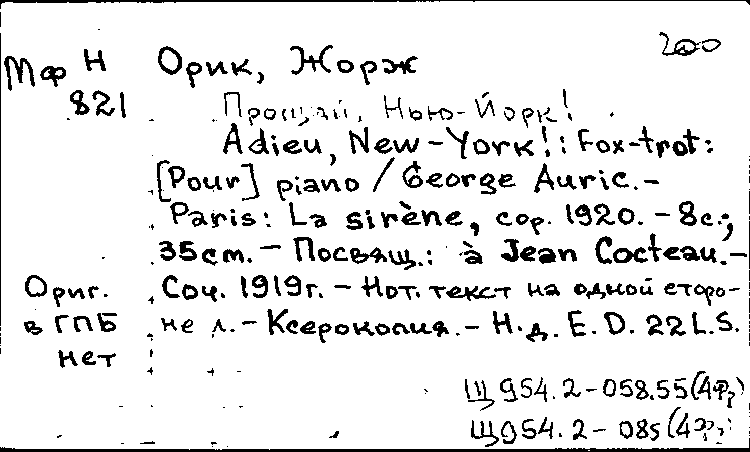 200
Мф Н Орик, Жорж
821 Прощай, Нью-Йорк!
Adieu, New-York!: Fox-trot:
[Pour] piano / George Auric.-
Paris: La sirène, cop. 1920. - 8с.;
35 cm. - Посвящ.: à Jean Cocteau.-
Ориг. Соч. 1919г. - Нот. текст на одной сторо-
в ГПБ не л. - Ксерокопия. - Н.д. E.D. 22 L.S.
нет
Щ954.2-058.55(4Фр)
Щ954.2-085(4Фр)